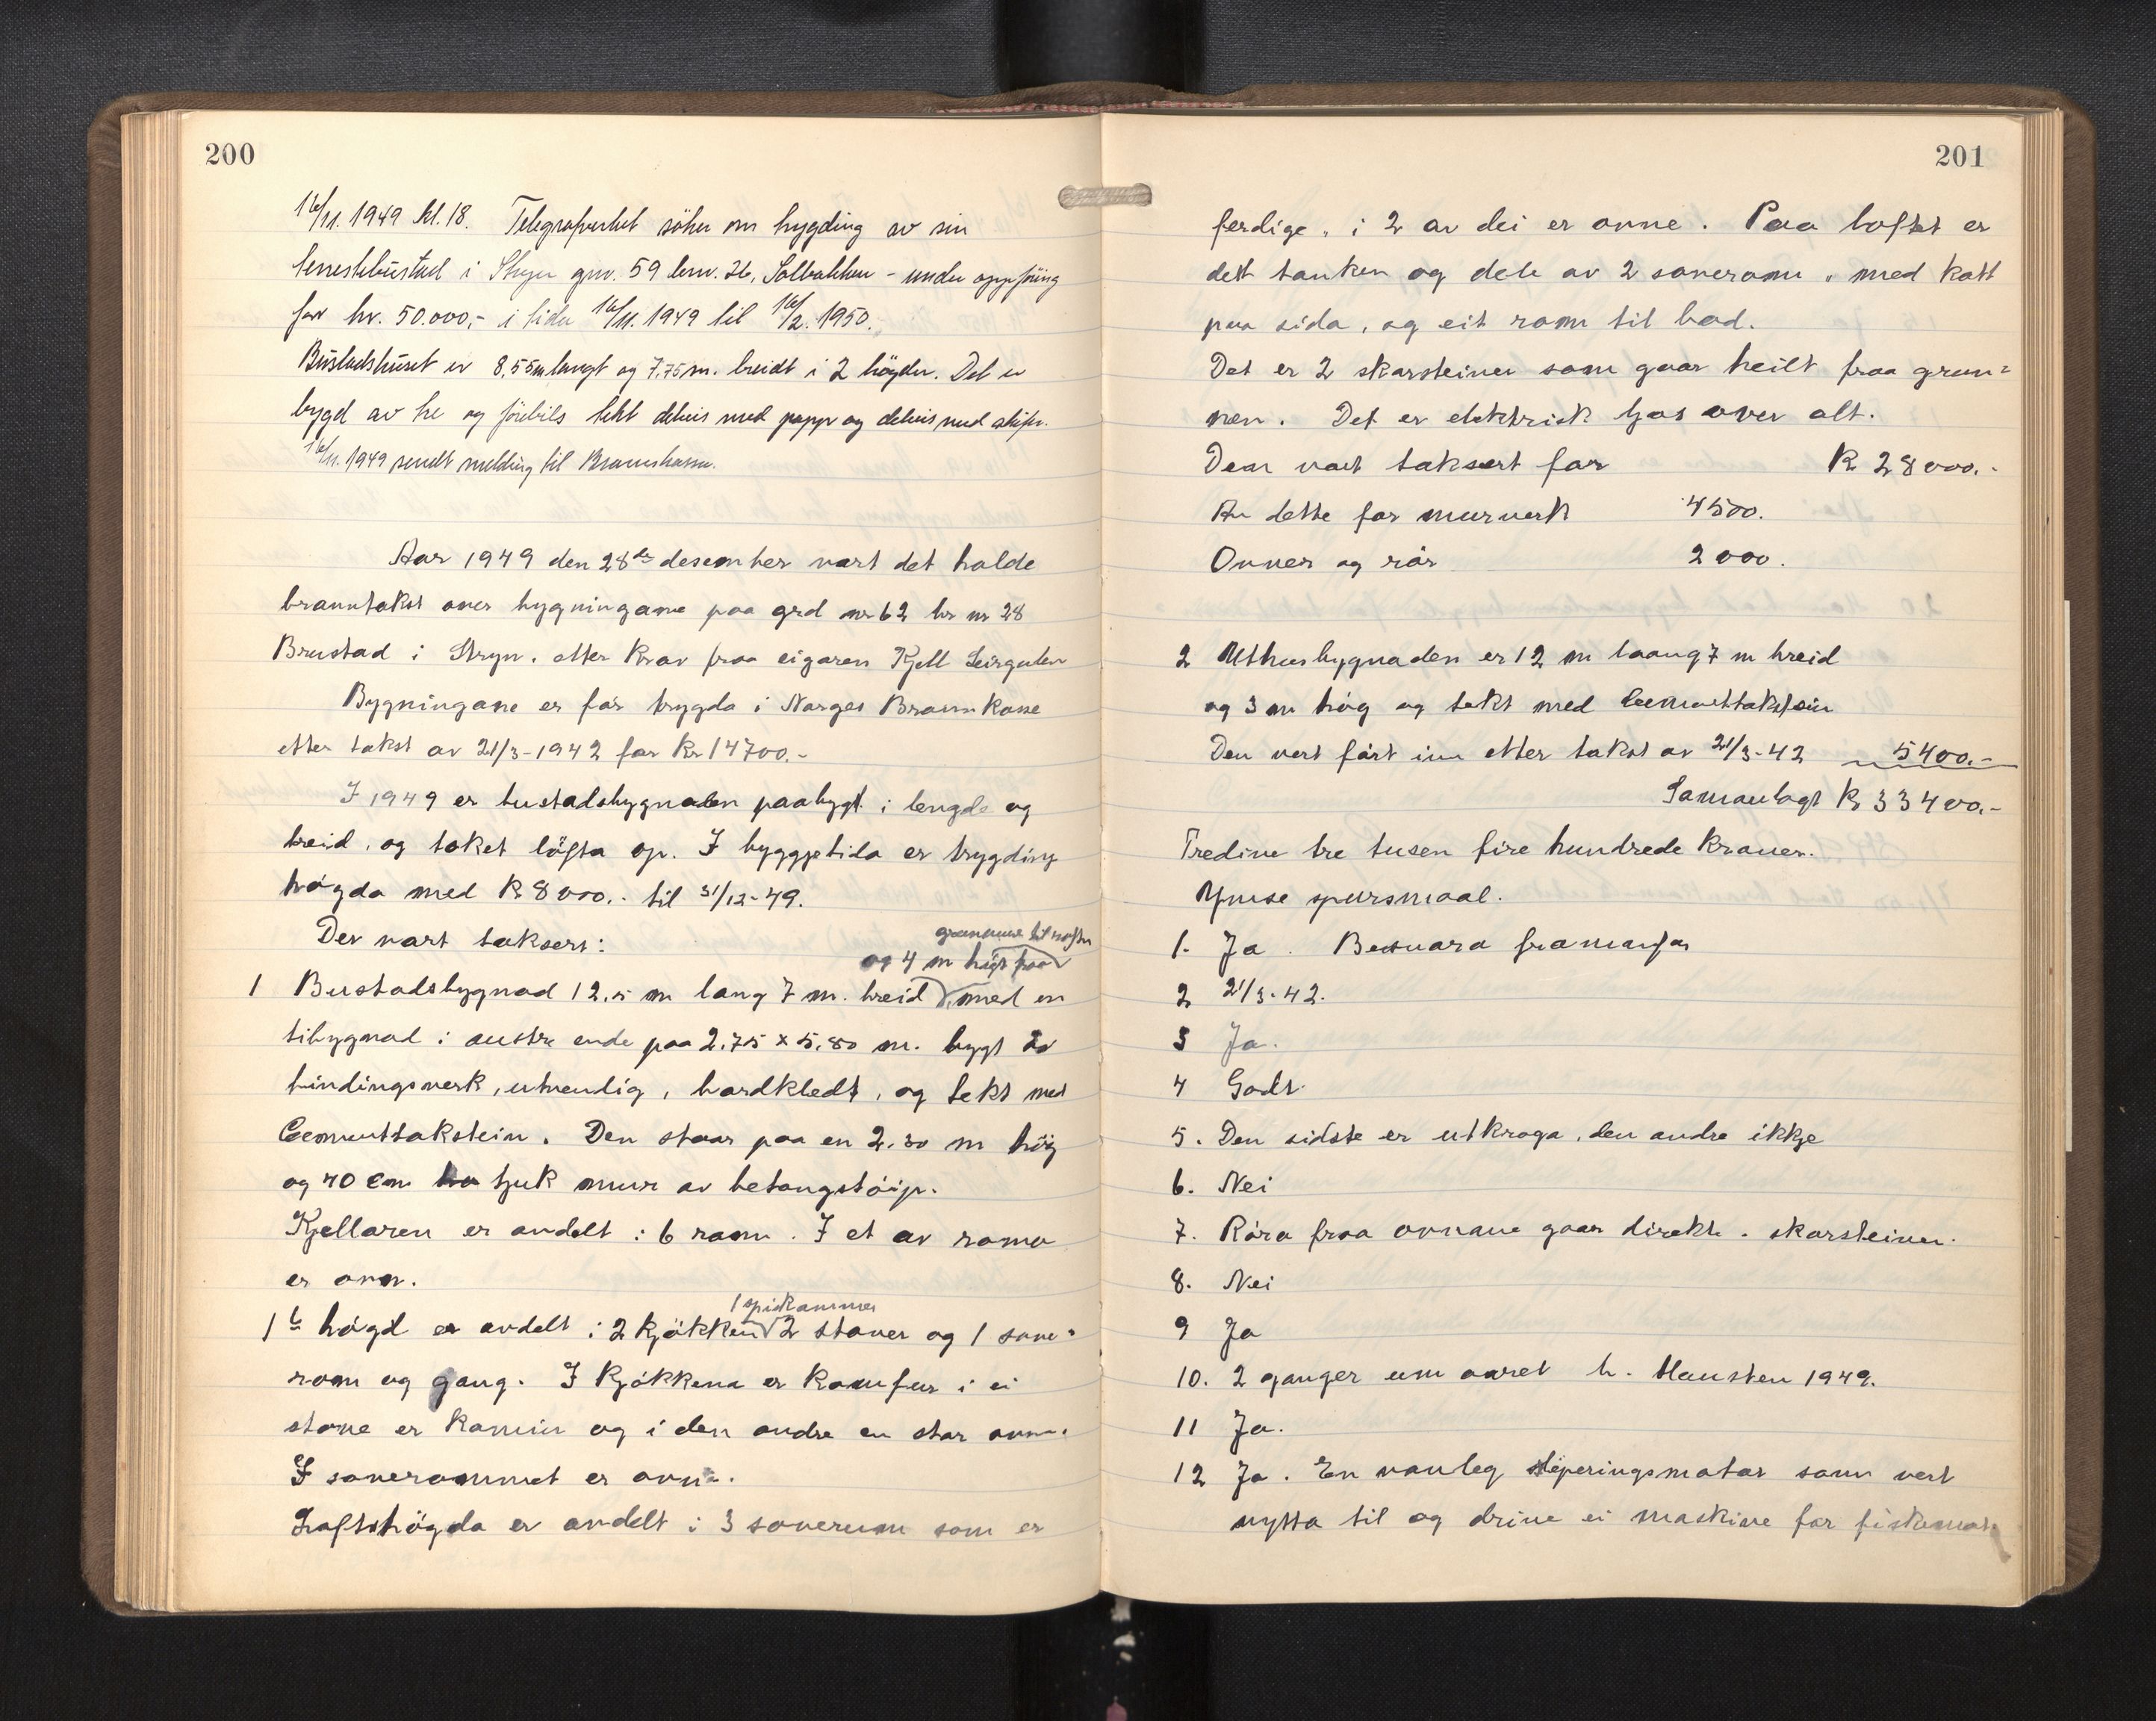 200
16/11. 1949 kl. 18. Telegrafverket söker om trygding av sin
tenestebustad i Stryn gnr. 59 bnr. 26, Solbakken - under oppföing
for kr. 50.000,- i tida 16/11. 1949 til 16/2. 1950.
Bustadhuset er 8,55 m langt og 7,75 m. breidt i 2 högder. Det er
bygd av tre og förebils tekt delvis med papp og delvis med skifer.
16/11. 1949 sendt melding til Brannkassa.
Aar 1949 den 28de desember vart det halde
branntakst over bygningane paa grd nr 62 br nr 28
Brustad i Stryn. etter krav fraa eigaren Kjell Leirgulen
Bygningane er før trygda i Norges Brannkasse
etter takst av 21/3-1942 for Kr 14700.-
I 1949 er bustadsbygnaden paabygt i lengde og
breid, og taket löfta op. I byggjetida er trygding
høgda med K 8000.- til 31/12-49.
Der vart taksert:
grunnmur til røstet
og 4 m høgt fraa
1 Bustadsbygnad 12.5 m lang 7 m. breid med en
tibygnad i austre ende paa 2.75 x 5.80 m. bygt av
bindingsverk, utvendig, bordkledt, og tekt med
Cementtakstein. Den staar paa en 2.30 m høg
og 40 cm tjuk mur av betongstøip.
Kjellaren er avdelt i 6 rom. I et av roma
er ovn.
1 spiskammer
1ste høgd er avdelt i 2 kjøkken 2 stover og 1 sove-
rom og gang. I kjøkkena er komfur i ei
stove er kamin og i den andre en stor ovn.
I soverommet er ovn.
Loftshøgda er avdelt i 3 soverum som er
201
ferdige, i 2 av dei er ovne. Paa loftet er
dett tanken og dele av 2 soverom, med kott
paa sida, og eit rom til bad.
Det er 2 skorsteiner som gaar heilt fraa grun-
nen. Det er elektrisk ljos over alt.
Den vart taksert for K 28000.-
Av dette for murverk 4500.
Ovner og rør 2000.
2 Uthusbygnaden er 12 m laang 7 m breid
og 3 m høg og tekt med Cementtakstein
Den vert ført inn etter takst av 21/3-42 5400.-
Samanlagt K 33400.-
Tredive tre tusen fire hundrede kroner.
Ymse spursmaal.
1. Ja.
2 21/3-42.
3 Ja.
4 Godt.
5. Den sidste er utkroga, den andre ikkje
6. Nei
7. Røra fraa ovnane gaar direkte i skorsteinen.
8. Nei
9 Ja
10. 2 ganger um aaret h. Hausten 1949.
11 Ja.
12 Ja. En vanleg slipperingsmotor som vert
nytta til og drive ei maskine for fiskemat